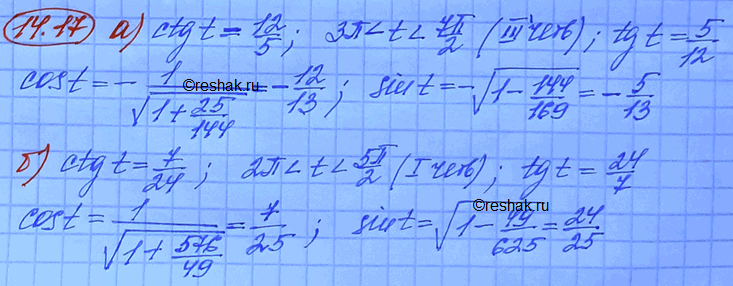 14.17 а) ctg t = 12/5; 3π < t < 7π/2 (III четв); tg t = 5/12
cos t = - 1/√(1 + 25/144) = - 12/13; sin t = -√(1 - 144/169) = - 5/13
©reshak.ru
б) ctg t = 7/24; 2π < t < 5π/2 (I четв); tg t = 24/7
cos t = 1/√(1 + 576/49) = 7/25; sin t = √(1 - 49/625) = 24/25
©reshak.ru